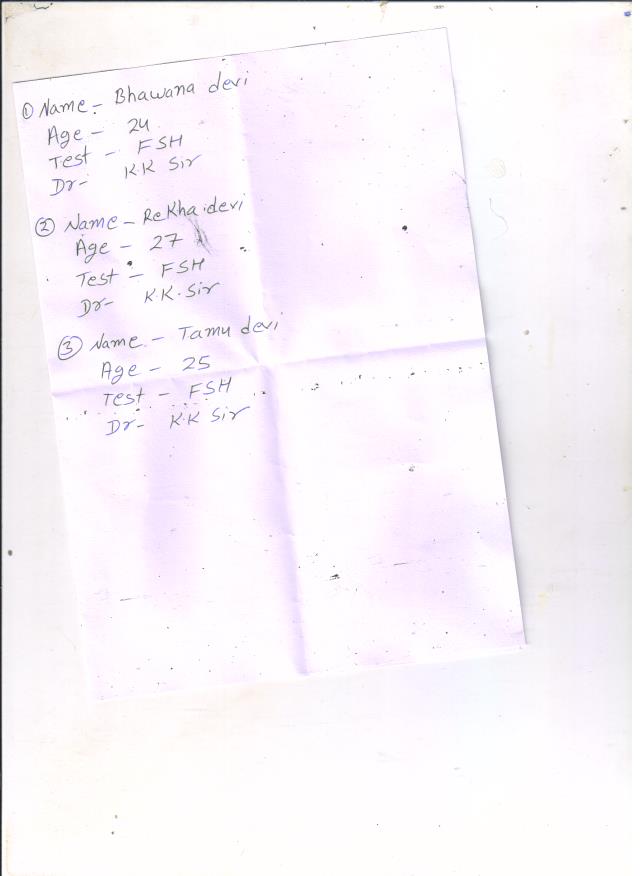 ① Name - Bhawana devi
Age - 24
Test - FSH
Dr- K.K Sir
② Name - Rekha devi
Age - 27
Test - FSH
Dr- K.K. Sir
③ Name - Tamu devi
Age - 25
Test - FSH
Dr- K.K Sir